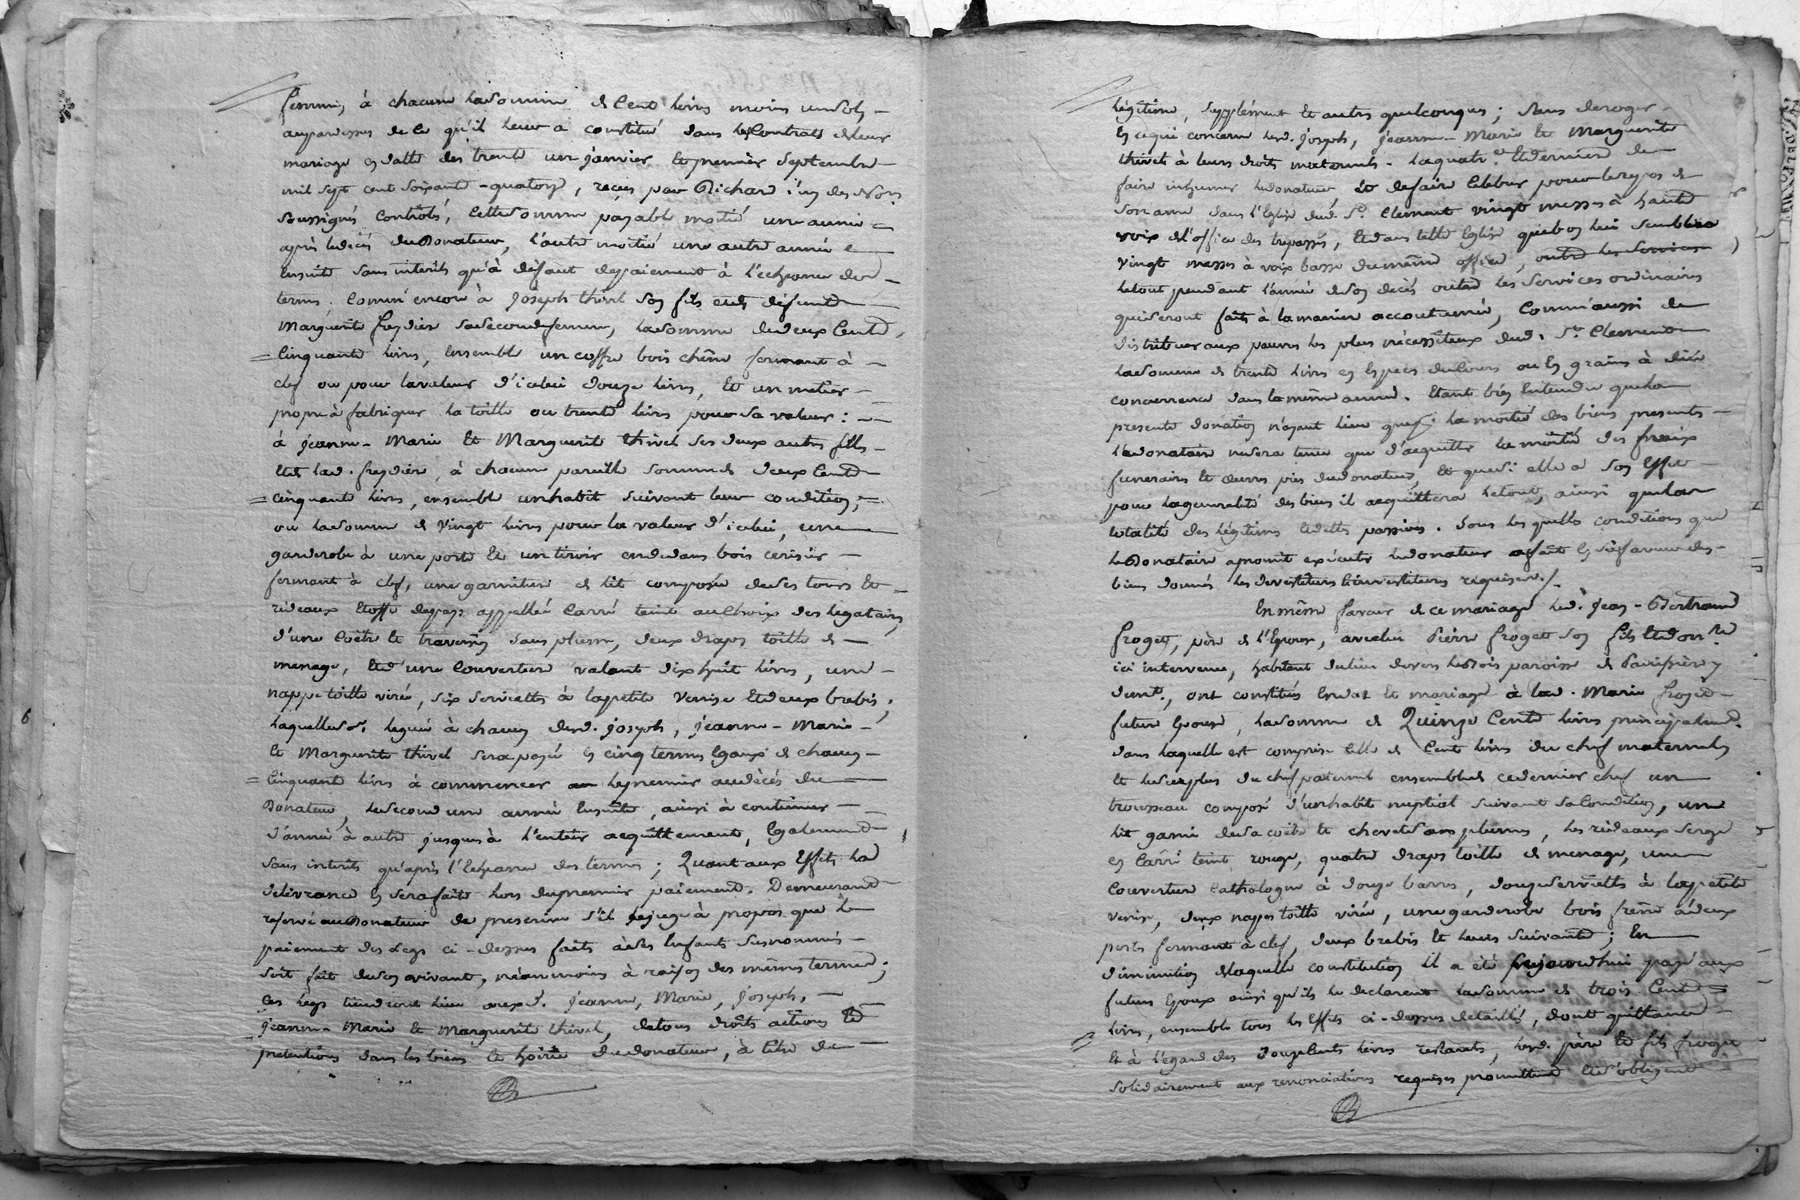 femmes, à chacune la somme de Cent livres moins un sol,
au par dessus de ce qu'il leur a constitué dans les Contrats de leur
mariage en datte des trente un janvier et premier Septembre
mil sept cent soixante-quatorze, reçus par Richard l'un des No.res
Soussignés controlés, cette somme payable moitié une année
après le décès du Donateur, l'autre moitié une autre année
ensuite sans interêts qu'à défaut de paiement à l'echeance des
termes. Comm'encore à Joseph thivel son fils et de défunte
Marguerite freydier sa seconde femme, la somme de deux Cents
Cinquante livres, ensemble un coffre bois chêne fermant à
clef ou pour la valeur d'icelui douze livres, et un métier
propre à fabriquer la toille ou trente livres pour sa valeur :
à jeanne-Marie et Marguerite thivel ses deux autres filles
et de lad. freydier, à chacune pareille somme de deux Cents
Cinquante livres, ensemble un habit suivant leur condition,
ou la somme de vingt livres pour la valeur d'icelui, une
garderobe à une porte et un tiroir en dedans bois cerisier
fermant à clef, une garniture de lit composée de ses tours et
rideaux étoffe de pays appellée Carré teint au Choix des légataires,
d'une Coëtre et traversin sans plume, deux draps toille de
menage, et d'une Couverture valant dix huit livres, une
nappe toille virée, six serviettes à la petite Venise et deux brebis ;
laquelle so.e léguée à chacun desd. joseph, jeanne-Marie
et Marguerite thivel sera payée en cinq termes égaux de chacun
Cinquante livres à commencer le premier au décès du
Donateur, le second une année ensuite, ainsi à continuer
d'année à autre jusques à l'entier acquittement, également
sans interêts qu'après l'echeance des termes ; Quant aux Effets la
délivrance en sera faite lors du premier paiement. Demeurant
reservé au Donateur de prescrire s'il le juge à propos que le
paiement des Legs ci-dessus faits à ses Enfants susnommés
soit fait de son vivant, néanmoins à raison des mêmes termes ;
Ces legs tiendront lieu auxd. jeanne, Marie, joseph,
jeanne-Marie et Marguerite thivel, de tous droits actions et
prétentions dans les biens et hoirie du donateur, à titre de
légitime, supplément et autres quelconques ; sans deroger
En ce qui concerne lesd. joseph, jeanne-Marie et Marguerite
thivel à leurs droits maternels. La quatr.e et derniere de
faire inhumer le donateur, et de faire Célébrer pour le repos de
son ame dans l'Eglise dud. S.t Clément vingt messes à haute
voix de l'office des trepassés, et dans telle Eglise que bon lui semblera
vingt messes à voix basse du même office, outre les Services
le tout pendant l'année de son decès outre les Services ordinaires
qui seront faits à la maniere accoutumée, Comm'aussi de
distribuer aux pauvres les plus nécessiteux dud. S.t Clement
la somme de trente livres en Espèces de Cours ou en grains à due
concurrence dans la même année. Etant bien Entendu que la
presente donation n'ayant lieu que pr. la moitié des biens presents
le donataire ne sera tenu que d'acquitter la moitié des fraix
funeraires et œuvres pies du donateur, et que si elle a son Effet
pour la généralité des biens il acquittera le tout, ainsi que la
totalité des légitimes et dettes passives. Sous les quelles conditions que
le Donataire a promis exécuter le donateur a fait en sa faveur des
biens donnés les devestitures & investitures requises./.
En même faveur de ce mariage led. Jean-Bertrand
froget, père de l'Epouse, avec lui Pierre froget son fils et don.re
ici intervenu, habitant du lieu devers les Bois paroisse de
demt., ont constitués En dot et mariage à lad. Marie froget
future Epouse, la somme de Quinze Cents livres principalement.
dans laquelle est comprise celle de Cent livres du chef maternel
et le surplus du chef paternel ensemble de ce dernier chef un
trousseau composé d'un habit nuptial suivant sa Condition, un
lit garni de sa coëtre et chevet sans plumes, les rideaux serge
en Carré teint rouge, quatre draps toille de menage, une
Couverture Cathalogne à douze barres, douze serviettes à la petite
venise, deux nappes toille virée, une garderobe bois frêne à deux
portes fermant à clef, deux brebis et leurs suivants ; En
diminution de laquelle constitution il a été cejourd'hui payé aux
futurs Epoux ainsi qu'ils le declarent la somme de trois Cents
livres, ensemble tous les Effets ci-dessus détaillés, dont quittance
Et à l'egard des douze Cents livres restants, lesd. père et fils froget
solidairement aux renonciations requises promettent et s'obligent